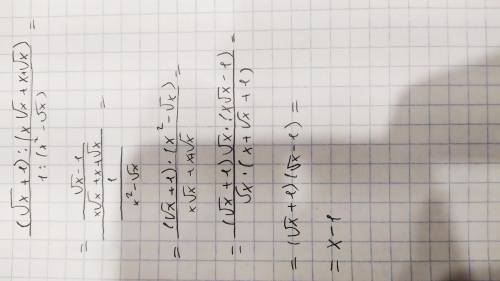 (√x + 1) : (x√x + x + √x) / 1 : (x² - √x) =
= (√x - 1 / x√x + x + √x) / (1 / x² - √x) =
= (√x + 1) · (x² - √x) / x√x + x + √x =
= (√x + 1) √x · (x√x - 1) / √x · (x + √x + 1) =
= (√x + 1) (√x - 1) =
= x - 1